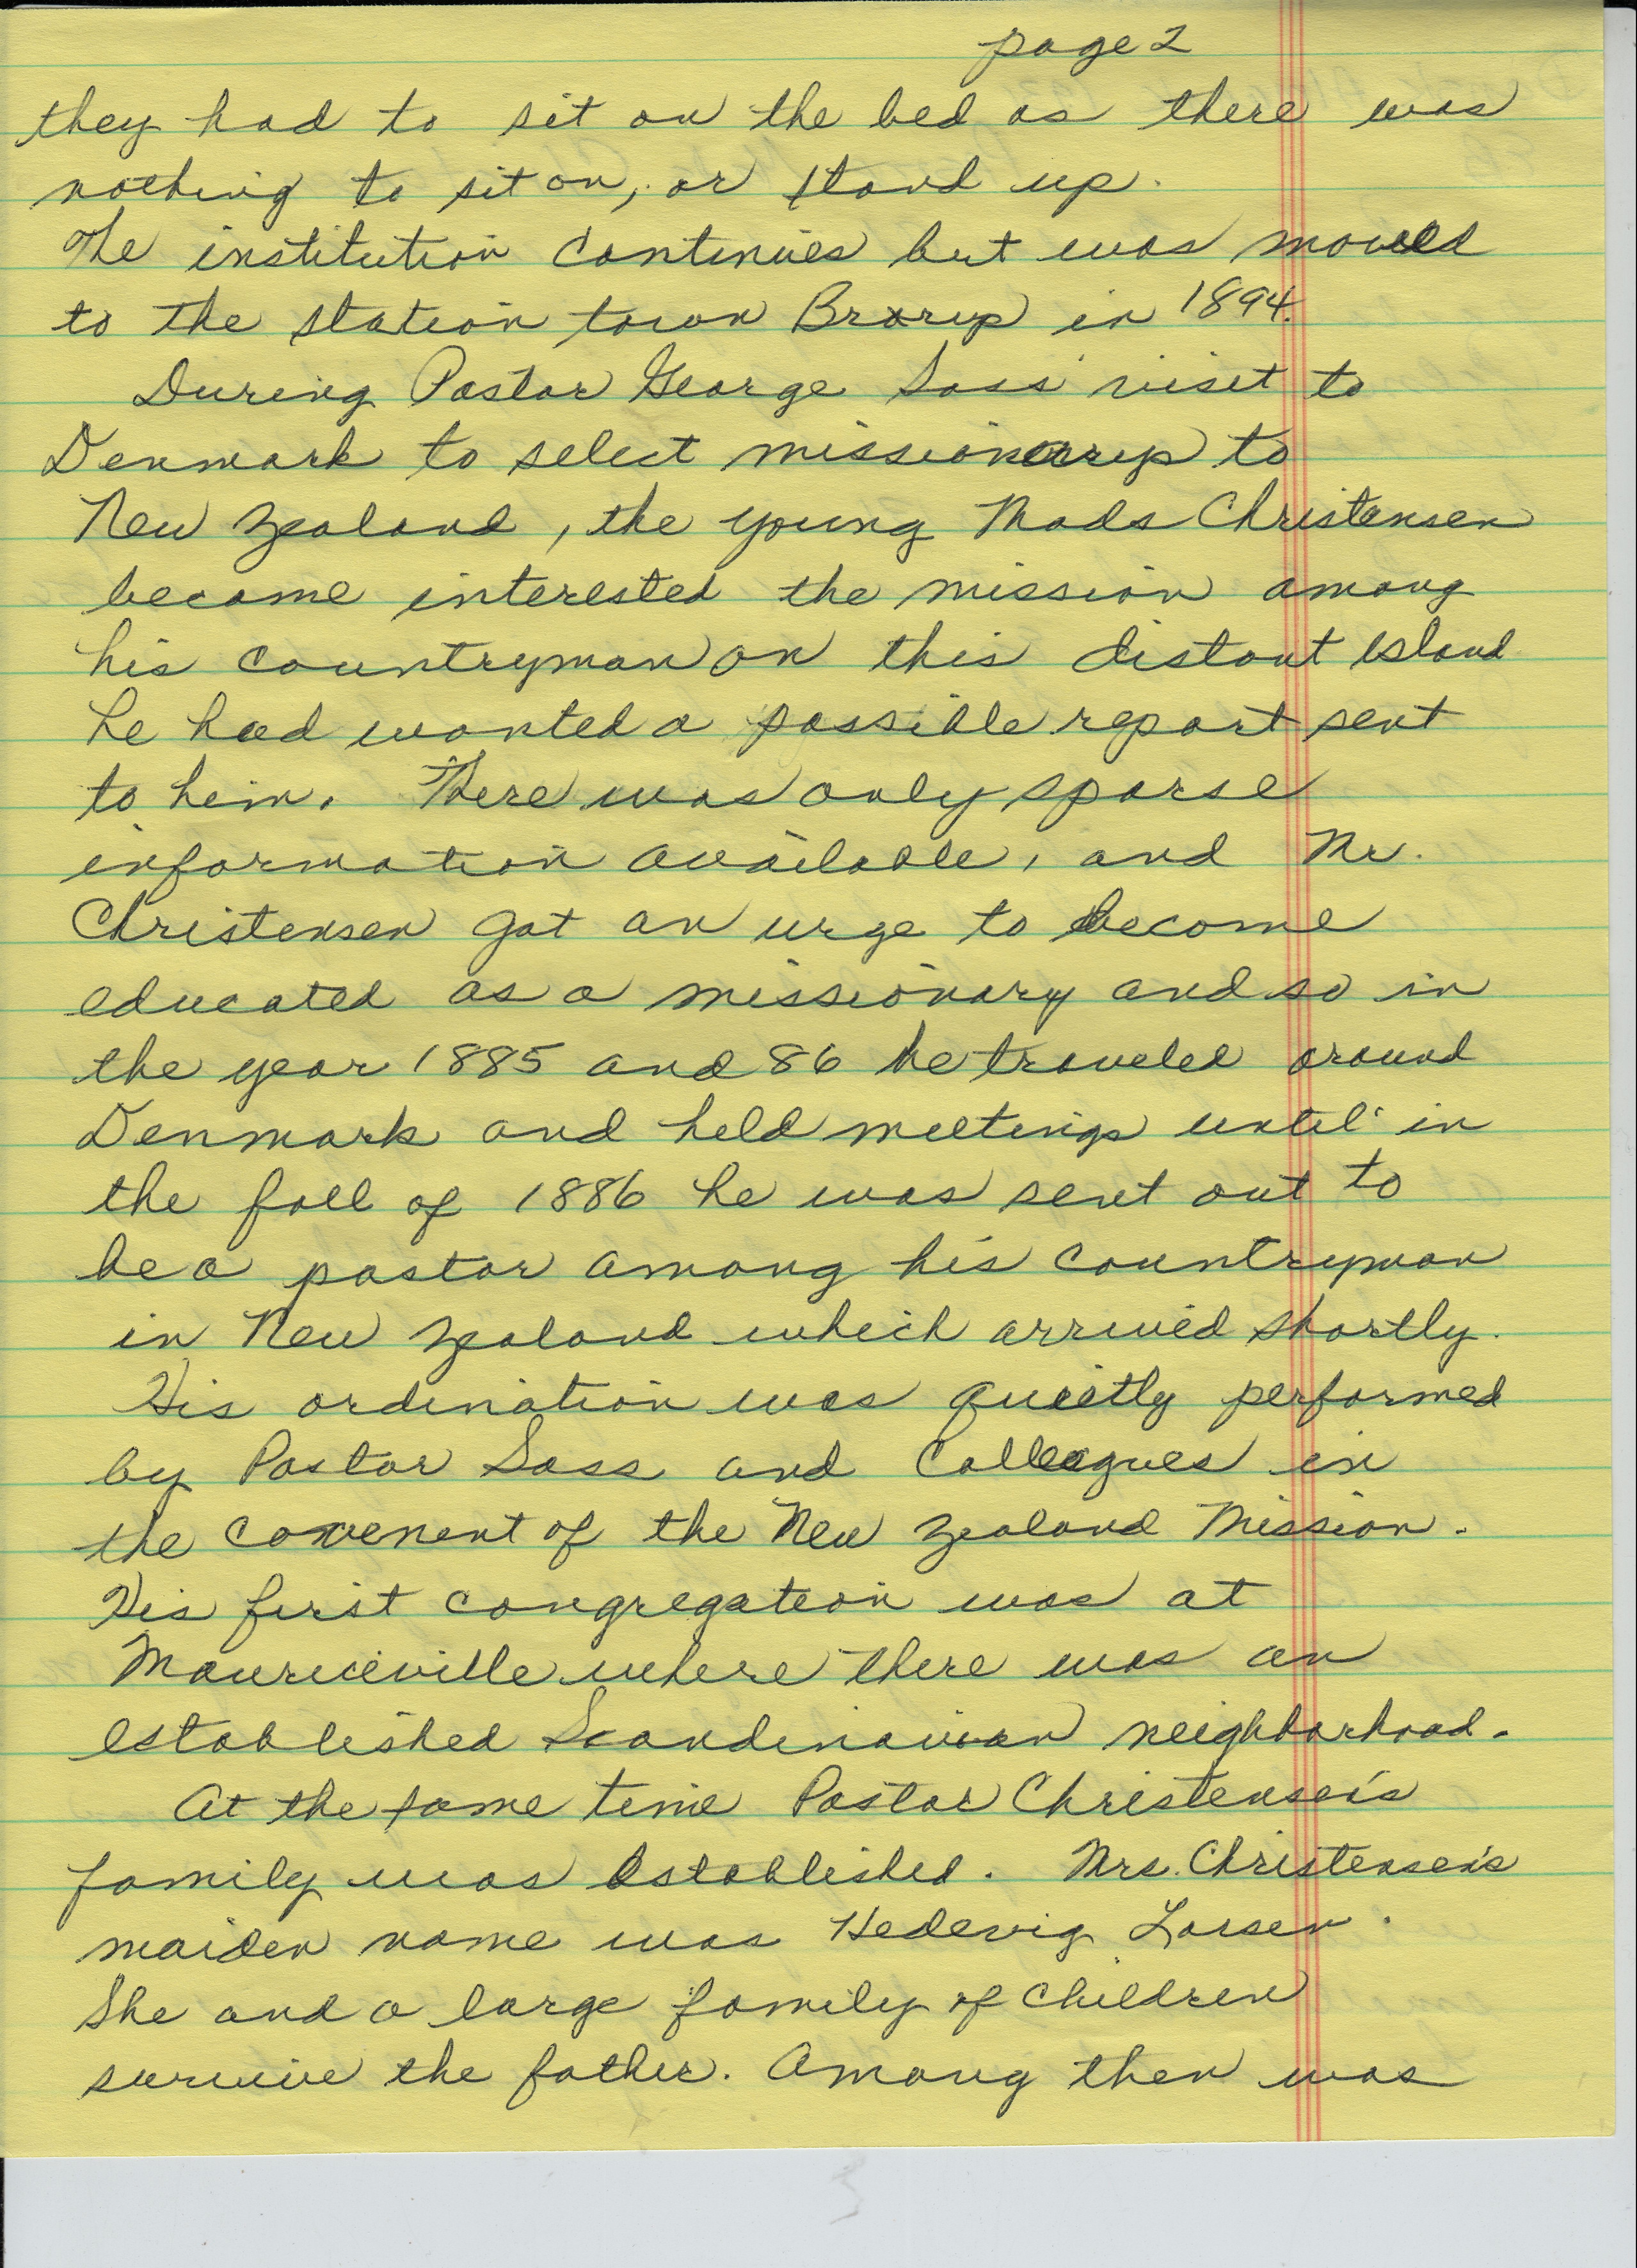 page 2
they had to sit on the bed as there was
nothing to sit on, or stand up.
The institution continues but was moved
to the station town Brorup in 1894.
During Pastor George Sass' visit to
Denmark to select missionarys to
New Zealand, the young Mads Christensen
became interested the mission among
his countryman on this distant Island
he had wanted a possible report sent
to him. There was only sparse
information available, and Mr.
Christensen got an urge to become
educated as a missionary and so in
the year 1885 and 86 he traveled around
Denmark and held meetings until in
the fall of 1886 he was sent out to
be a pastor among his countryman
in New Zealand which arrived shortly.
His ordination was quietly performed
by Pastor Sass and Colleagues in
the covenent of the New Zealand Mission.
His first congregation was at
Mauriceville where there was an
established Scandinavian neighborhood.
At the same time Pastor Christensen's
family was established. Mrs. Christensen's
maiden name was Hedevig Larsen.
She and a large family of children
survive the father. Among them was